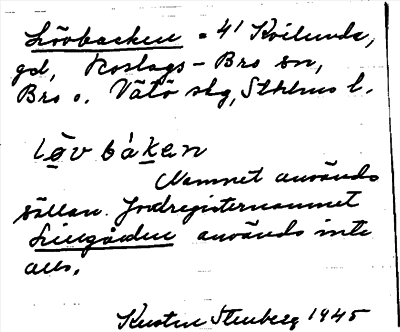 Lövbacken = 4¹ Kvilunda,
gd, Roslags-Bro sn,
Bro o. Vätö skg, Sthlms l.
löv bàken
Namnet används
sällan. Jordregisternamnet
Lillgården används inte
alls.
Kerstin Stenberg 1945